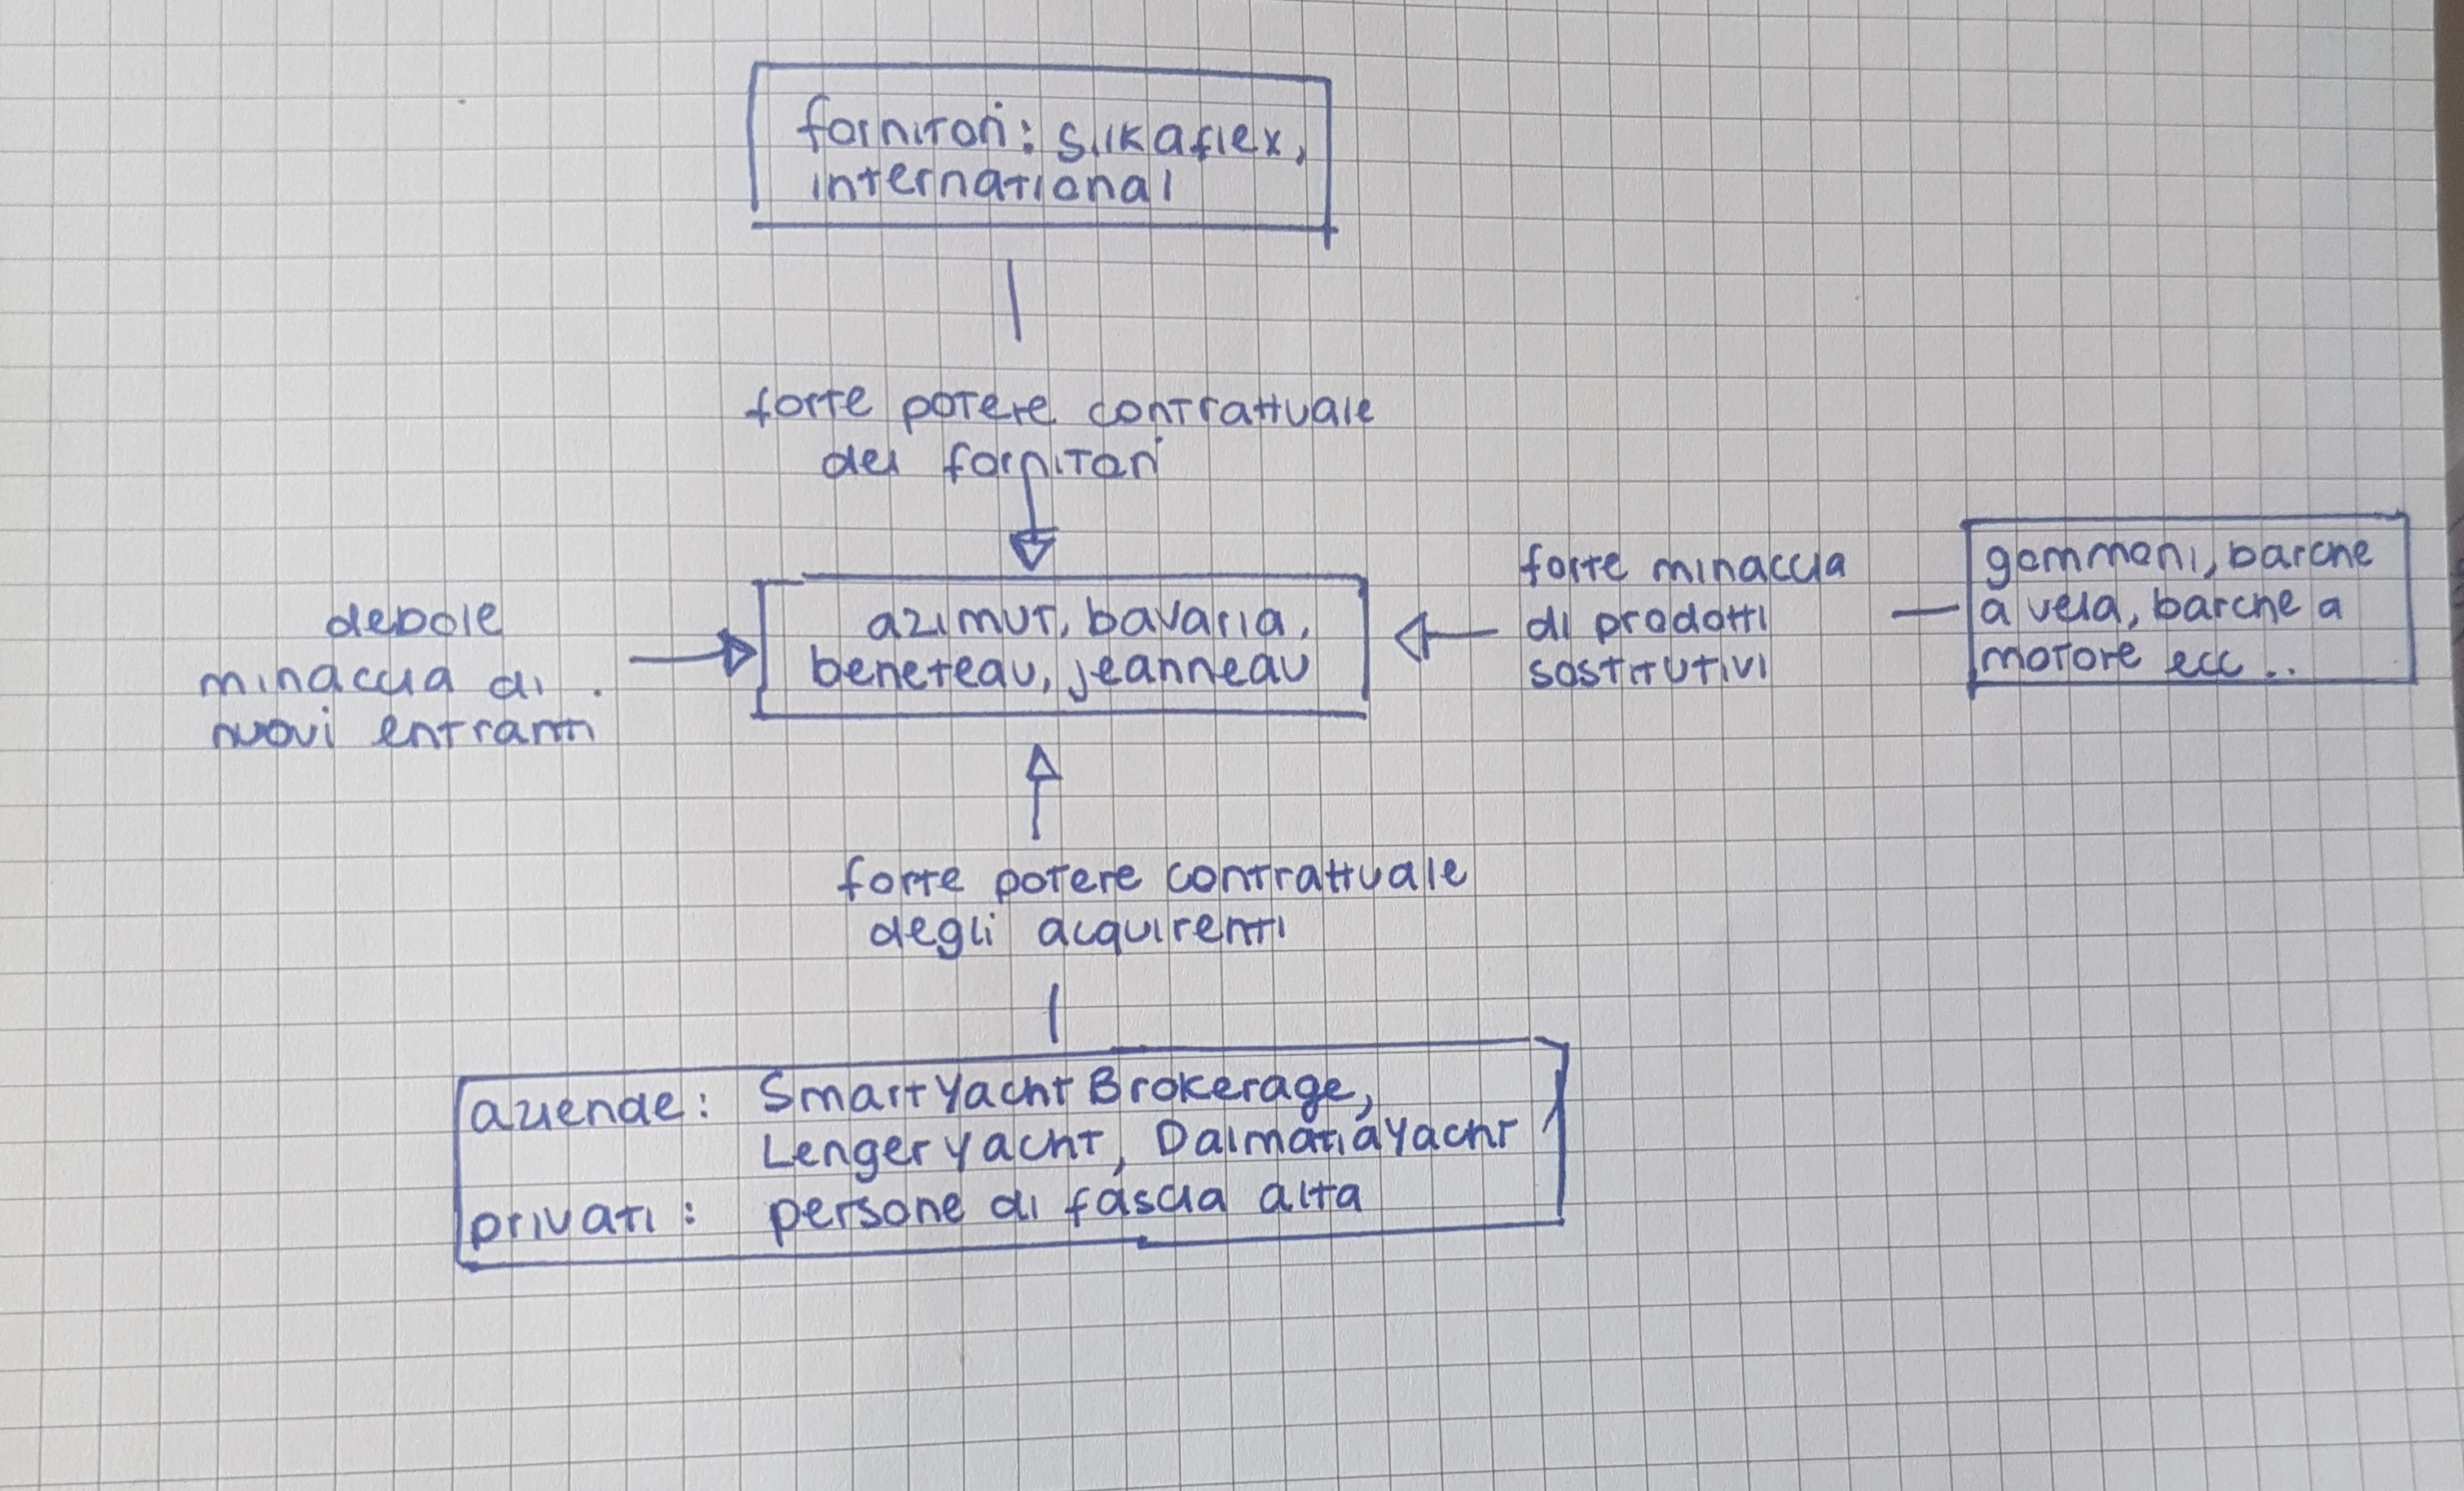 fornitori: silkaflex,
international
forte potere contrattuale
dei fornitori
debole
minaccia di
nuovi entranti
azimut, bavaria,
beneteau, jeanneau
forte minaccia
di prodotti
sostitutivi
gommoni, barche
a vela, barche a
motore ecc..
forte potere contrattuale
degli acquirenti
aziende: SmartYachtBrokerage,
Lengeryacht, DalmatiaYacht
privati: persone di fascia alta